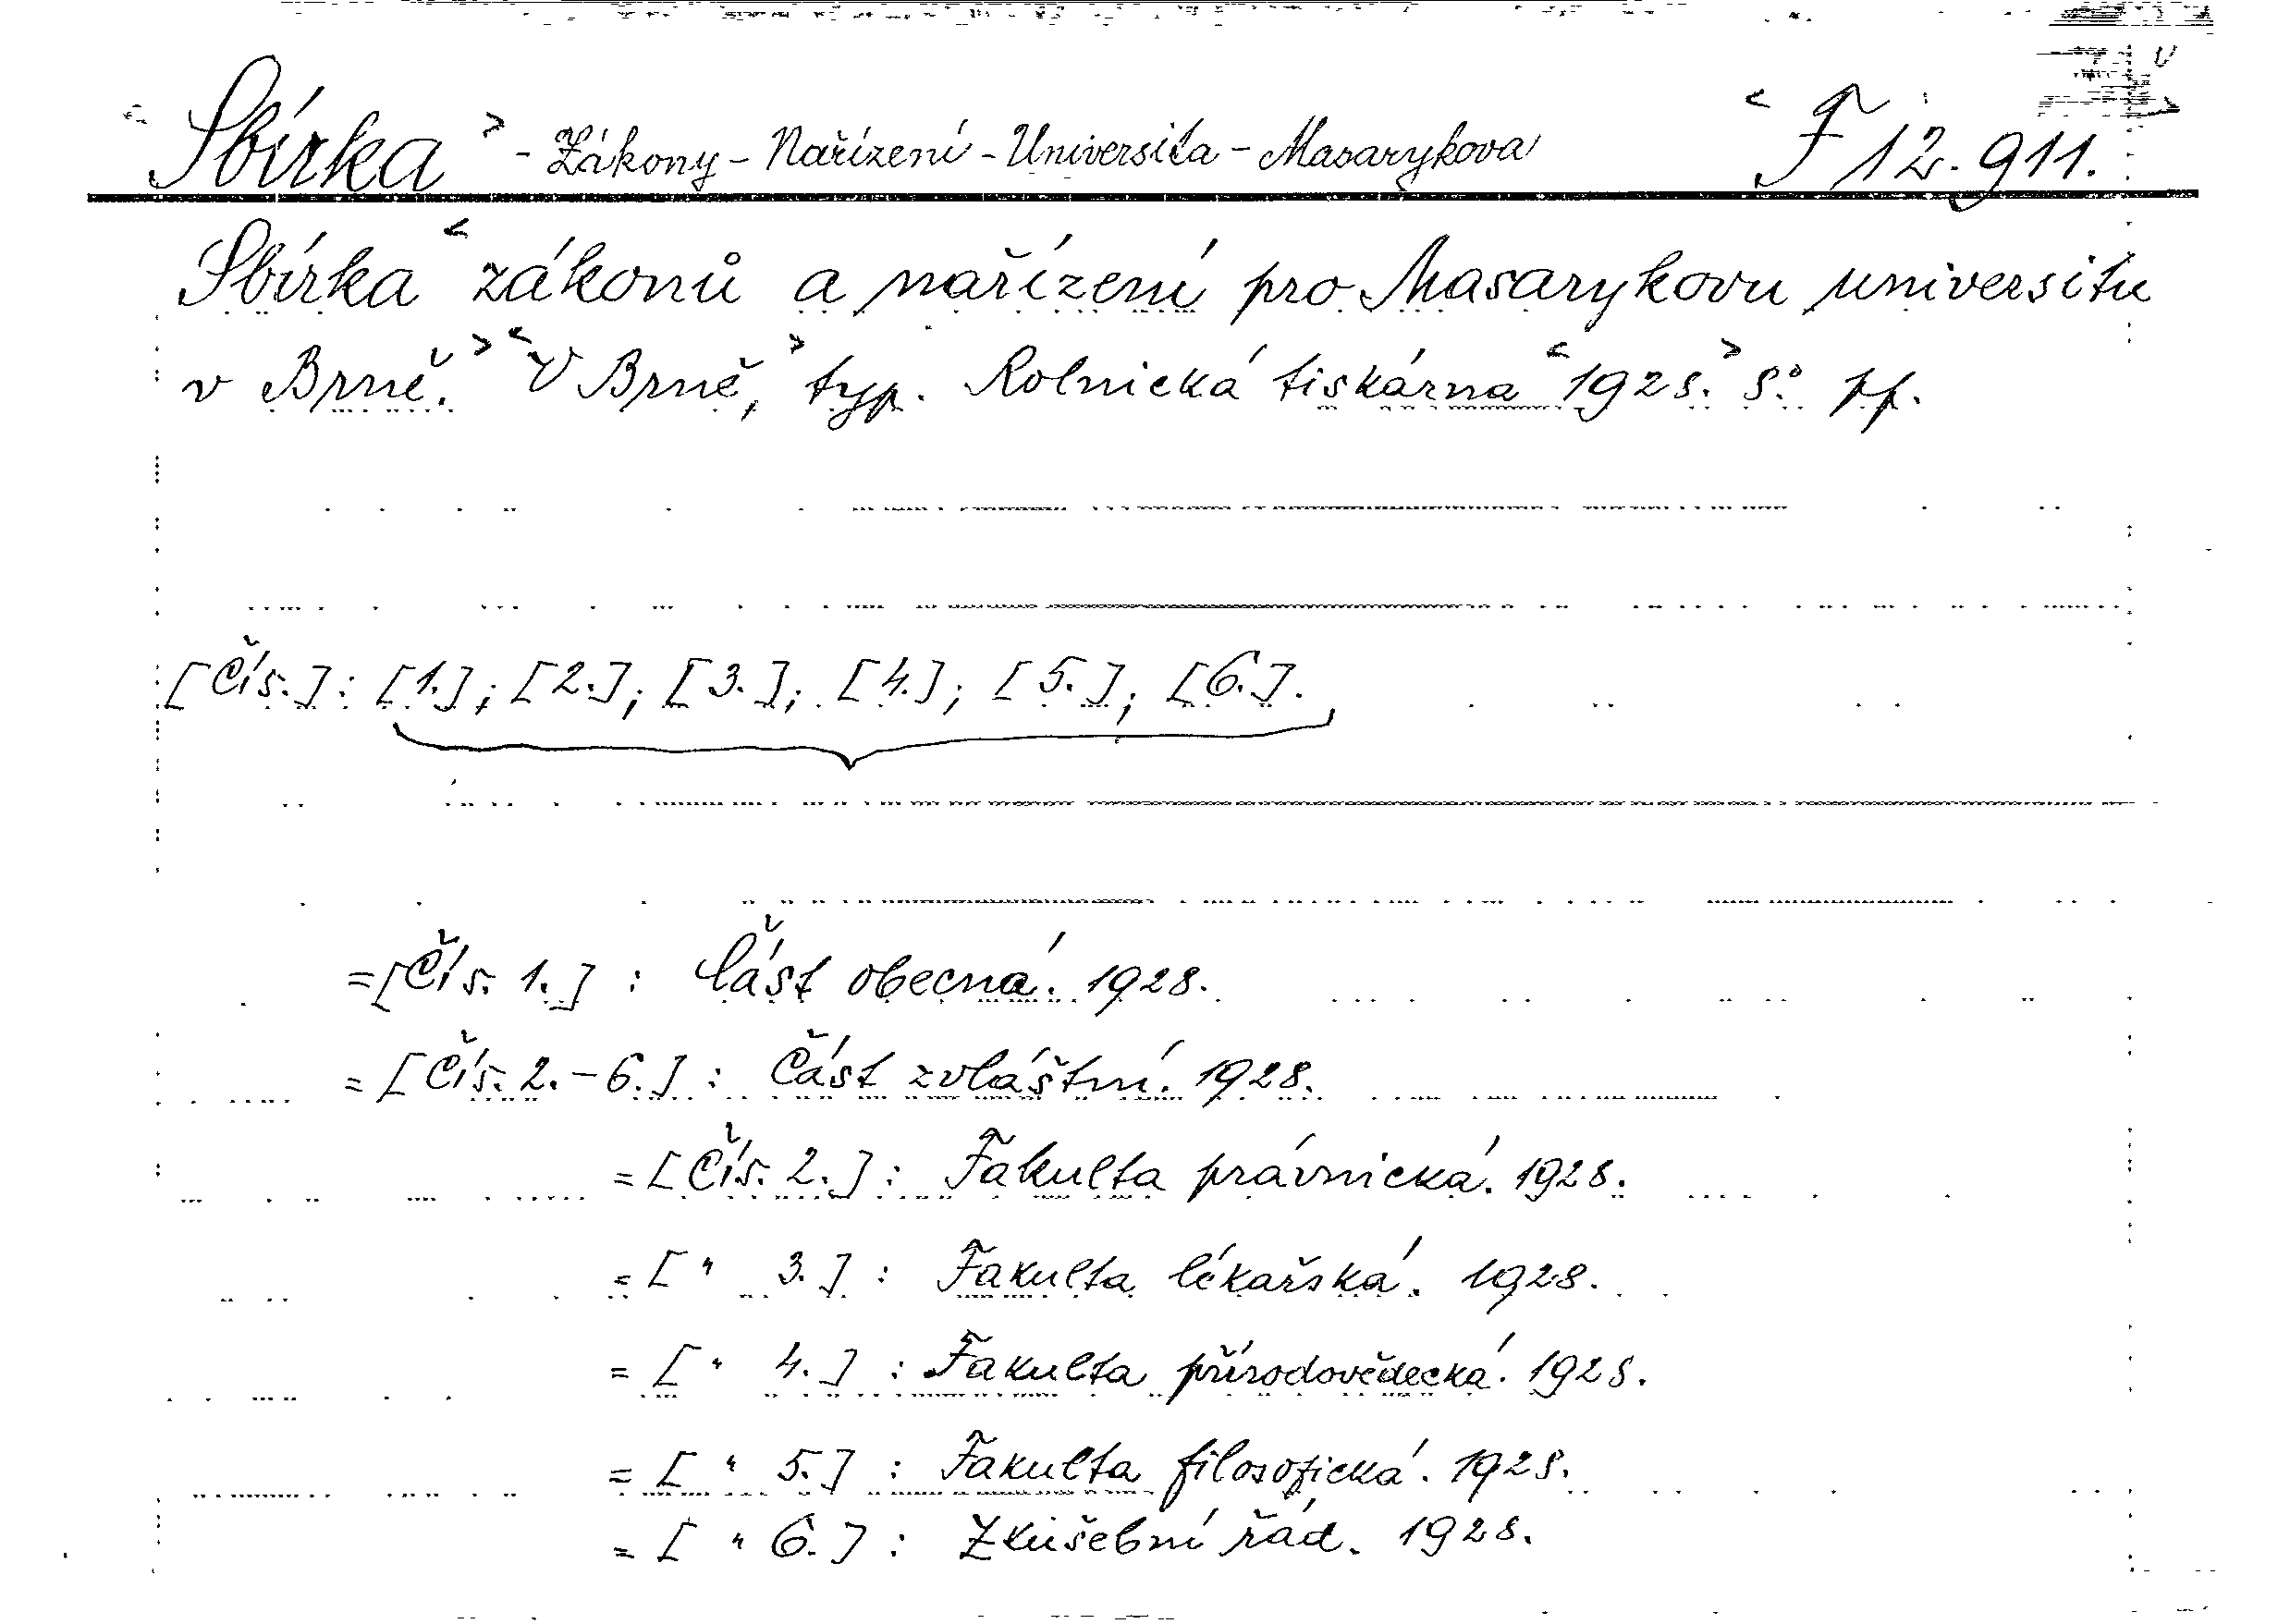 < Sbírka > - Zákony - Nařízení - Universita - Masarykova < F 12.911. >
Sbírka < zákonů a nařízení pro Masarykovu universitu
v Brně. > < V Brně, > typ. Rolnická tiskárna < 1928. > 8° pp.
[Čís.]: [1.]; [2.]; [3.]; [4.]; [5.]; [6.].
= [Čís. 1.] : Část obecná. 1928.
= [Čís. 2. - 6.] : Část zvláštní. 1928.
= [Čís. 2.] : Fakulta právnická. 1928.
= [ " 3.] : Fakulta lékařská. 1928.
= [ " 4.] : Fakulta přírodovědecká. 1928.
= [ " 5.] : Fakulta filosofická. 1928.
= [ " 6.] : Zkušební řád. 1928.